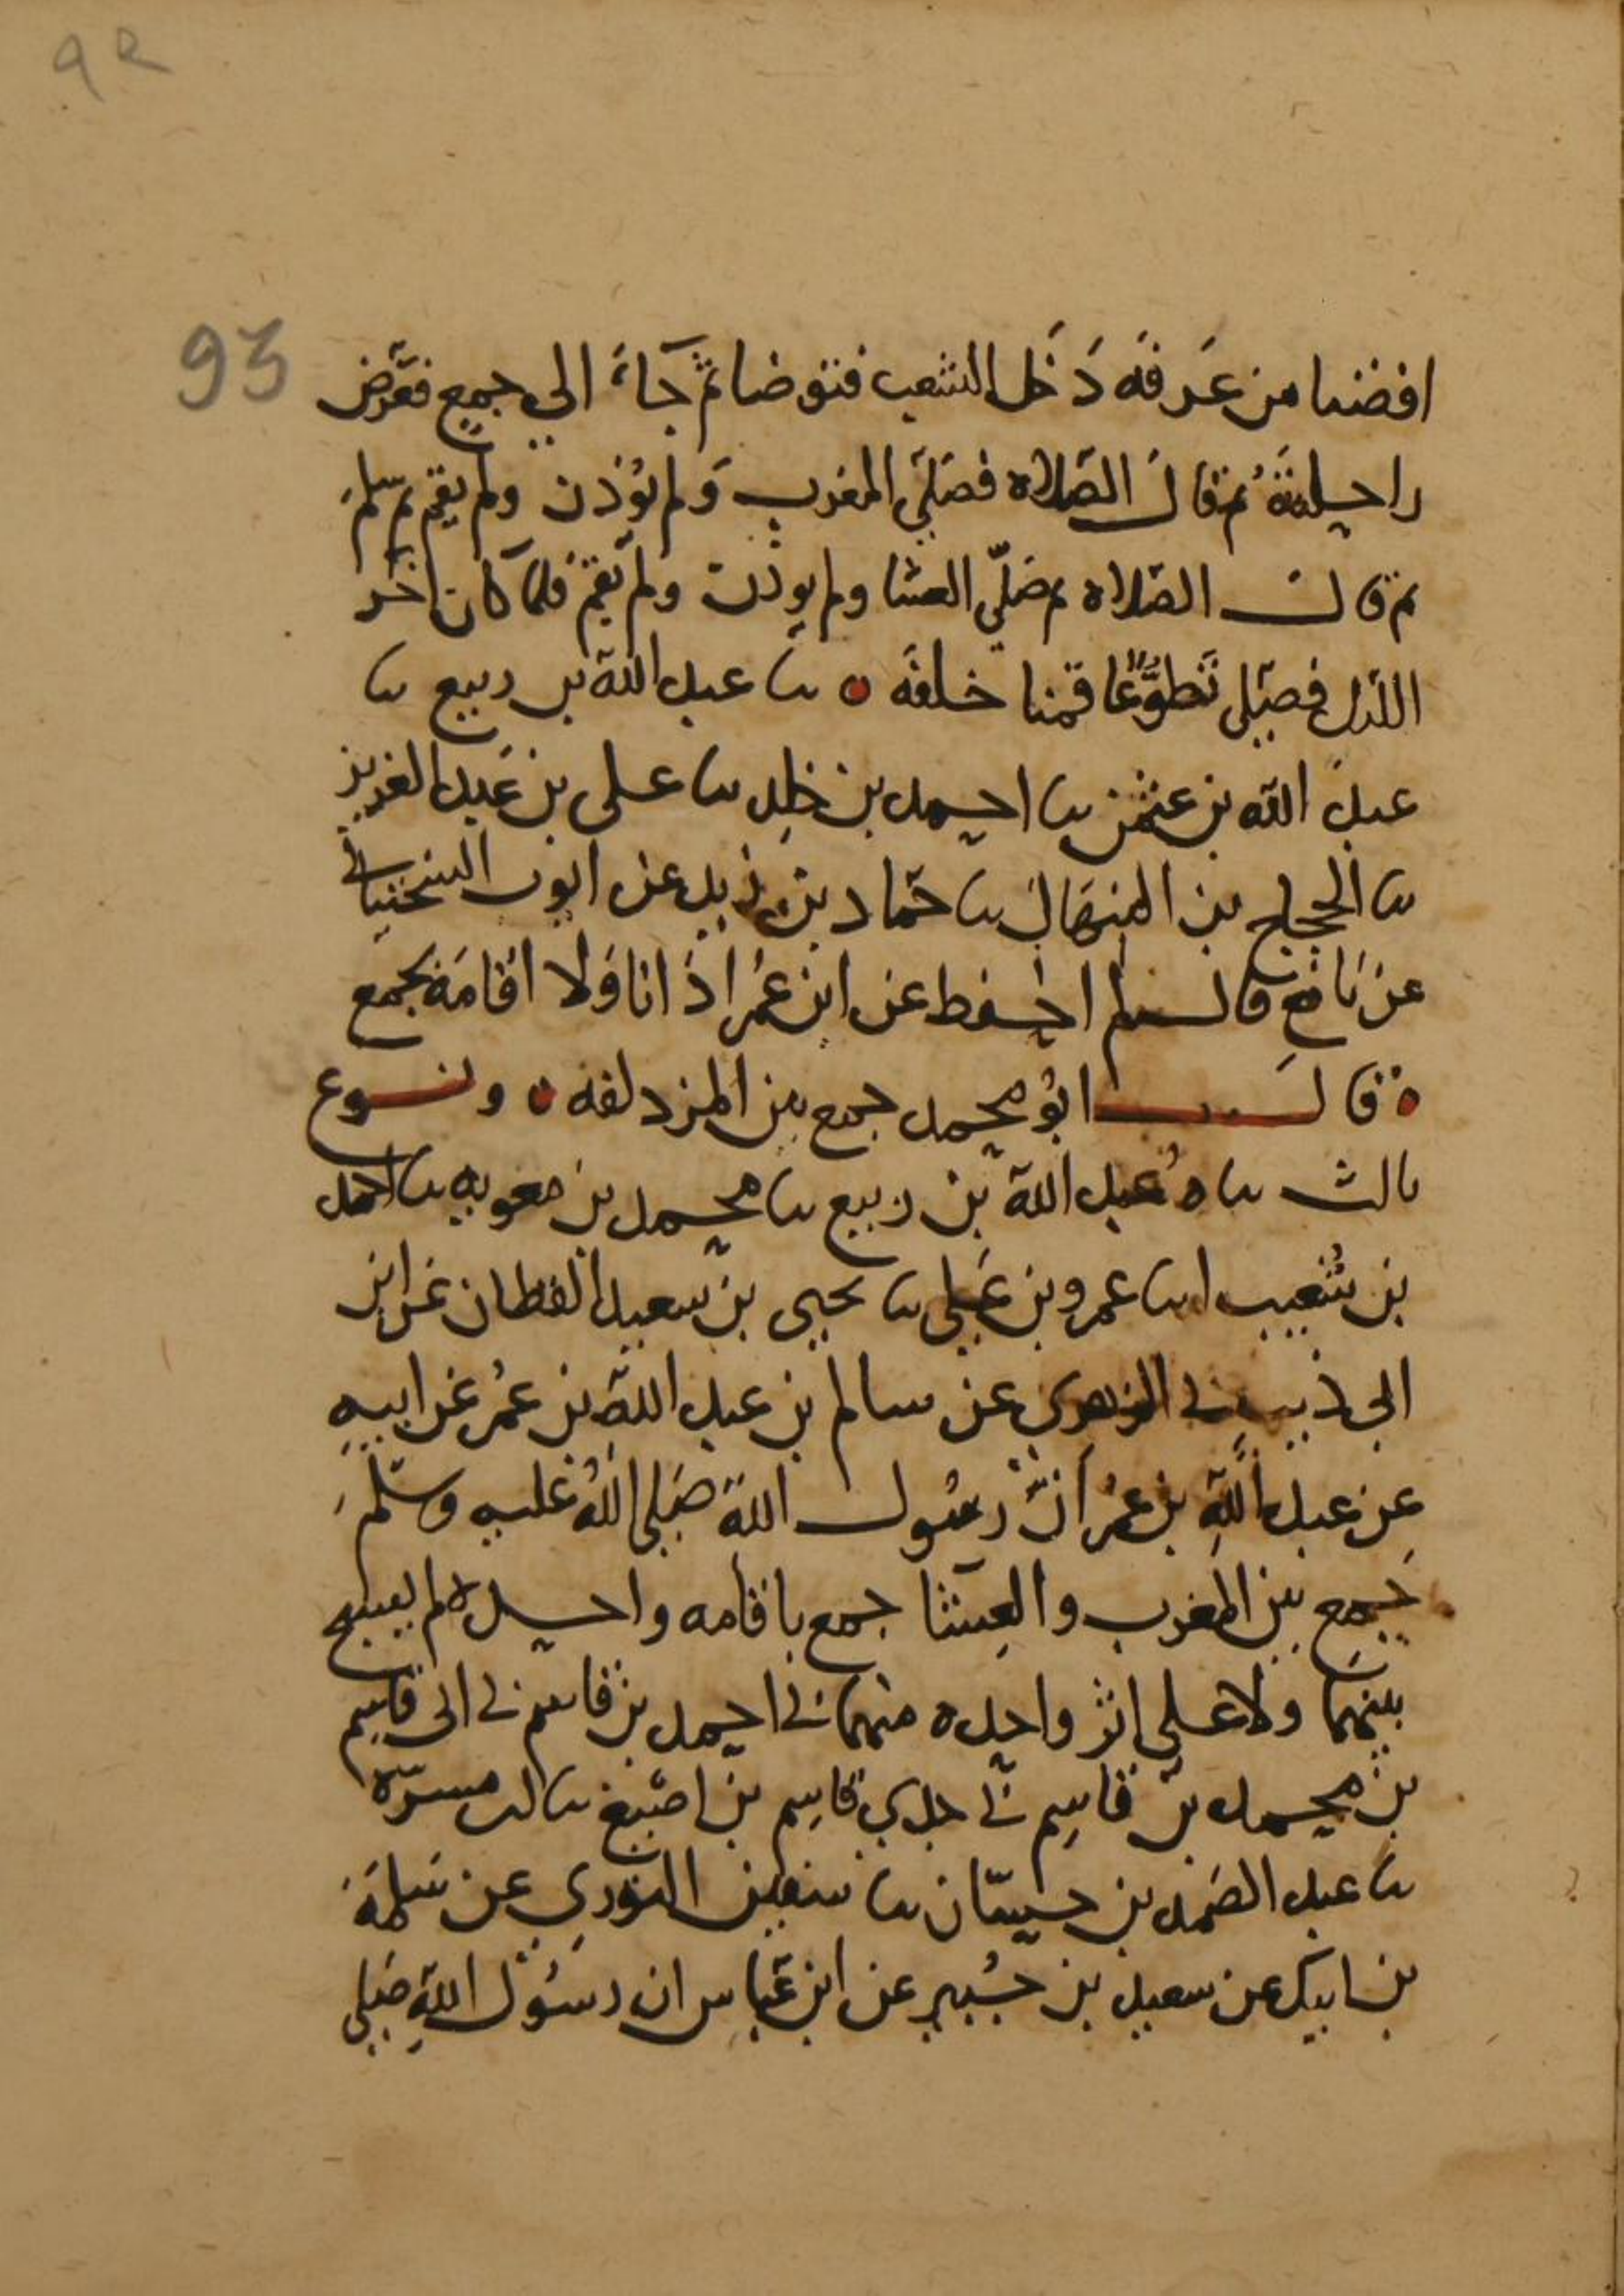 92
93
افضنا من عَرفَه دَخَل الشعب فتوضا ثم جَاءَ الي جمع فعَرض
راحلتَهُ ثم قال الصَّلاه فصَلّي المغرب وَلم يُوذن ولم يقم ثم سَلم
ثم قال الصّلاه ثم صَلّي العشا ولم يوذن ولم يُقم فلما كان اخر
الليل فصَلي تَطوُّعًا قمنا خلفَه ٥ نا عبد الله بن ربيع نا
عبد الله بن عثمن نا احمد بن خلد نا على بن عَبد العزيز
نا الحجاج بن المنهَال نا حَماد بن زيد عن ايوب السختيانى
عن نَافع قال لم احفظ عن ابن عُمر اذَانا وَلا اقامَة بجمع
٥ قال ابُو محمد جمع هي المزدلفه ٥ ونوع
ثالث نا ه عَبد الله بن ربيع نا محمد بن معويه نا احمد
بن شُعيب انا عمرو بن عَلي نا يحيى بن سعيد القطان عَن ابن
ابي ذيب نى الزهري عن سالم بن عبد الله بن عُمر عَن ابيهِ
عن عبد اللهِ بن عُمر اَنّ رسُول الله صَلى اللهُ عَليه وسَلم
جَمع بين المغرب والعِشا جمع باقامه واحده لم يسبح
بينهمَا ولا عَلى اثر واحده منهما نى احمد بن قاسم نى ابى قاسم
بن محمد بن قاسِم نى جدي قاسِم بن اصبغ نا ابن مسرّه
نا عبد الصَمد بن حسّان نا سفين الثوري عن سَلمَة
بن كهيل عن سعيد بن جُبير عن ابن عَباس ان رسُول اللهِ صَلى